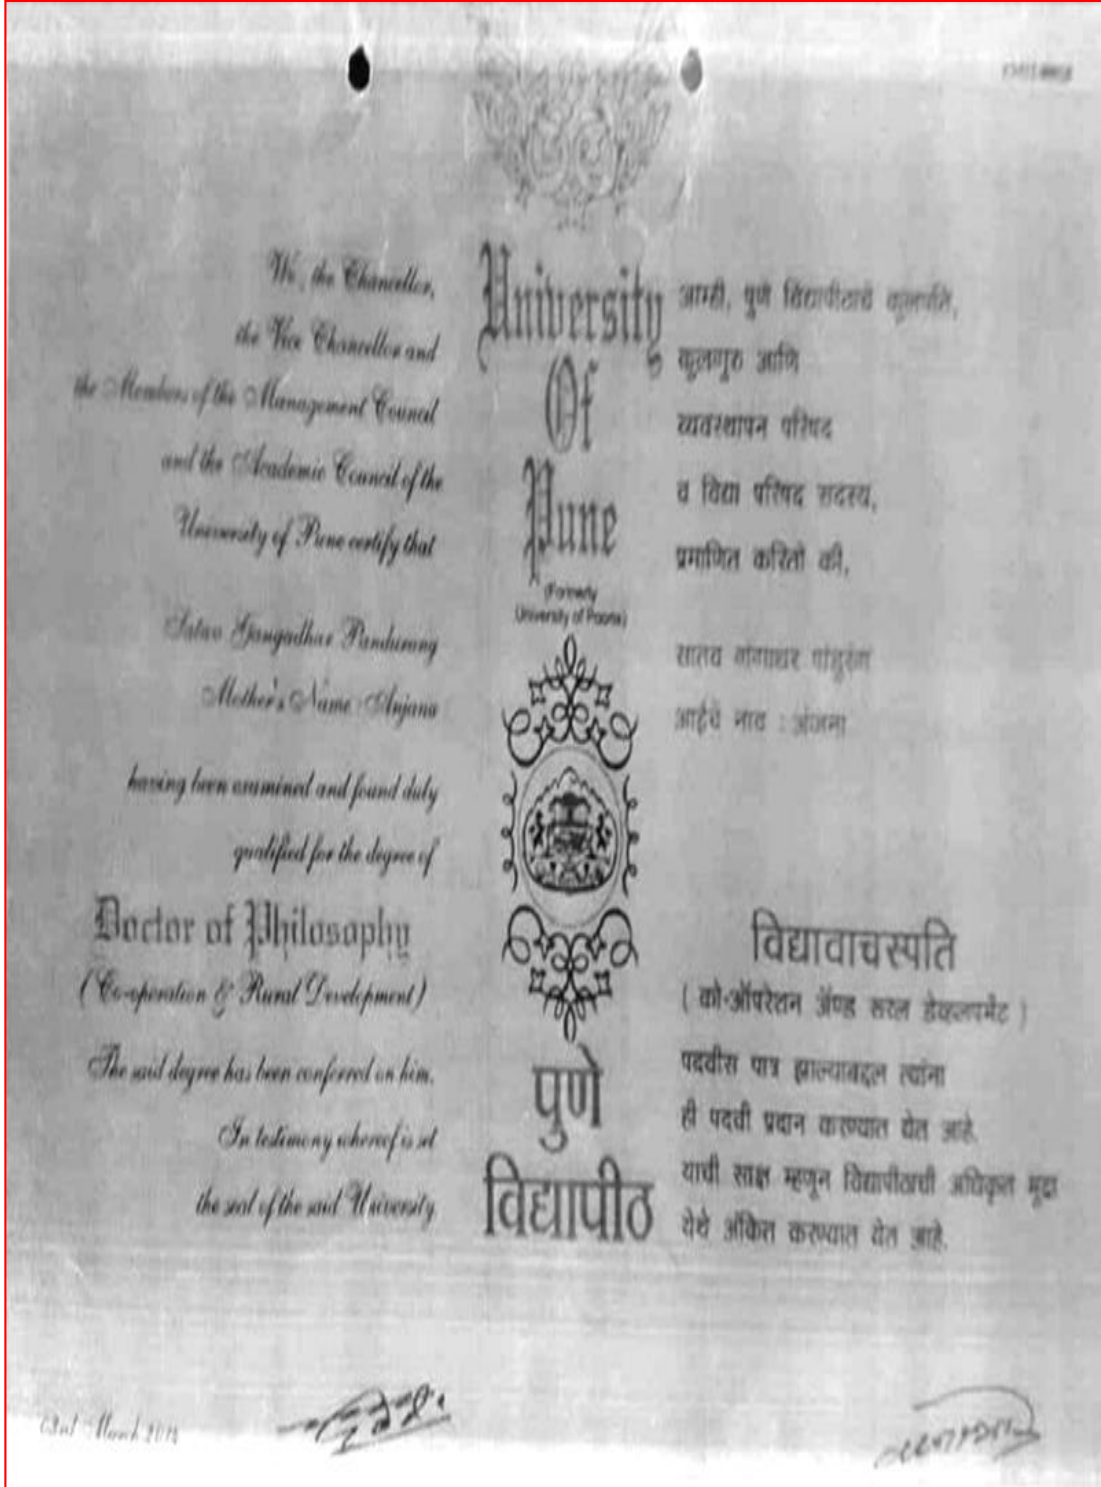 We, the Chancellor,
the Vice Chancellor and
the Members of the Management Council
and the Academic Council of the
University of Pune certify that
Satav Gangadhar Pandurang
Mother's Name : Anjana
having been examined and found duly
qualified for the degree of
Doctor of Philosophy
(Co-operation & Rural Development)
The said degree has been conferred on him.
In testimony whereof is set
the seal of the said University
University
Of
Pune
(Formerly
University of Poona)
पुणे
विद्यापीठ
आम्ही, पुणे विद्यापीठाचे कुलपति,
कुलगुरु आणि
व्यवस्थापन परिषद
व विद्या परिषद सदस्य,
प्रमाणित करितो की,
सातव गंगाधर पांडुरंग
आईचे नाव : अंजना
विद्यावाचस्पति
( को-ऑपरेशन ॲण्ड रुरल डेव्हलपमेंट )
पदवीस पात्र झाल्याबद्दल त्यांना
ही पदवी प्रदान करण्यात येत आहे.
याची साक्ष म्हणून विद्यापीठाची अधिकृत मुद्रा
येथे अंकित करण्यात येत आहे.
March